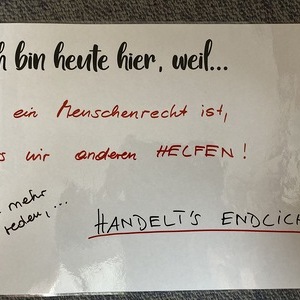 h bin heute hier, weil...
ein Menschenrecht ist,
s wir anderen HELFEN!
mehr
reden,...
HANDELT'S ENDLICH